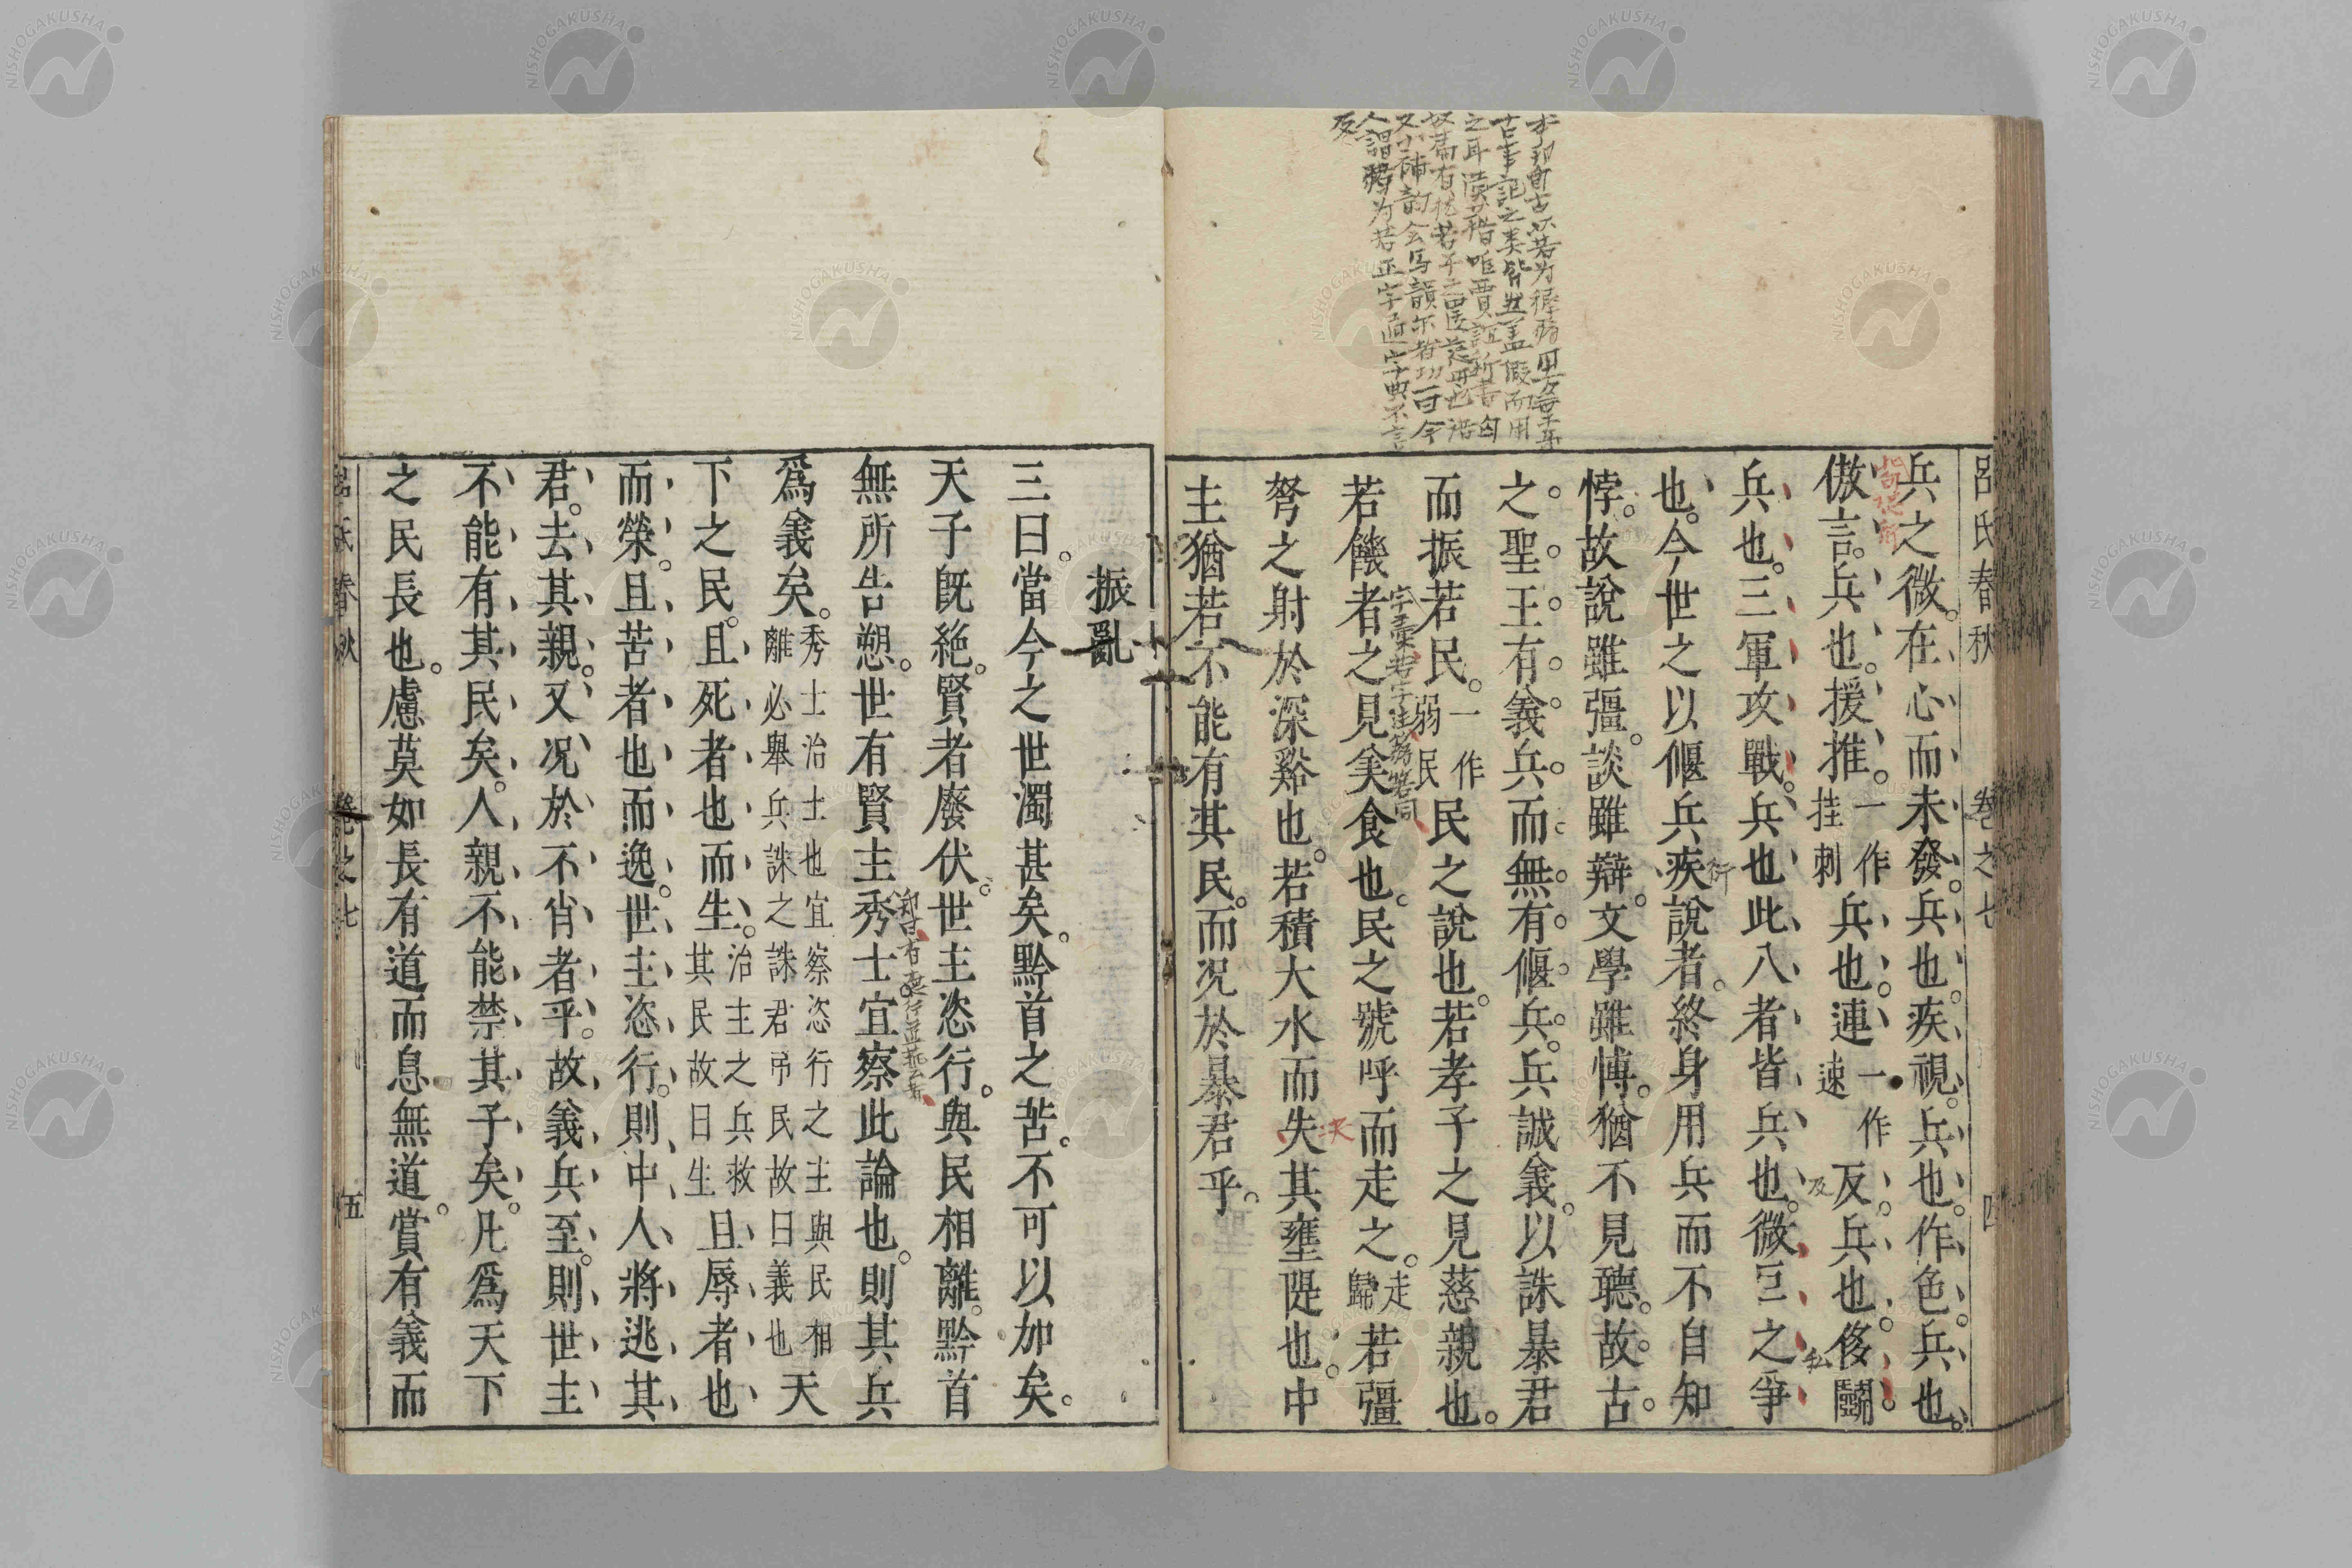 呂氏春秋　卷之七　四
兵之微。在心而未發。兵也。疾視。兵也。作色。兵也。
傲言。兵也。援推。一作挂刺兵也。連一作速反兵也。侈鬭。
兵也。三軍攻戰。兵也。此八者皆兵也。微巨之爭
也。今世之以偃兵疾說者。終身用兵而不自知
悖。故說雖彊。談雖辯。文學雖博。猶不見聽。故古
之聖王有義兵而無有偃兵。兵誠義。以誅暴君
而振若民。一作弱民民之說也。若孝子之見慈親也。
若饑者之見美食也。民之號呼而走之。走歸若彊
弩之射於深谿也。若積大水而失其壅隄也。中
主猶若不能有其民。而况於暴君乎。
振亂
三曰。當今之世濁甚矣。黔首之苦。不可以加矣。
天子既絶。賢者廢伏。世主恣行。與民相離。黔首
無所告愬。世有賢主秀士。宜察此論也。則其兵
爲義矣。秀士治士也宜察恣行之主與民相離必舉兵誅之誅君弔民故曰義也天
下之民。且死者也而生。治主之兵救其民故曰生且辱者也
而榮。且苦者也而逸。世主恣行。則中人將逃其
君。去其親。又况於不肖者乎。故義兵至。則世主
不能有其民矣。人親不能禁其子矣。凡爲天下
之民長也。慮莫如長有道而息無道。賞有義而
呂氏春秋　卷之七　五
NISHOGAKUSHA